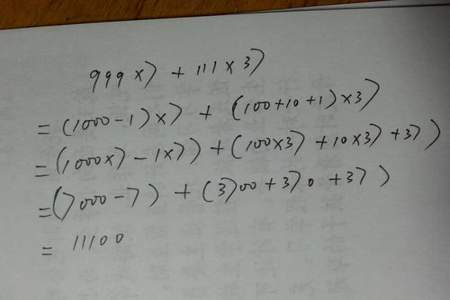 999×7+111×37
=(1000-1)×7+(100+10+1)×37
=(1000×7-1×7)+(100×37+10×37+37)
=(7000-7)+(3700+370+37)
=11100